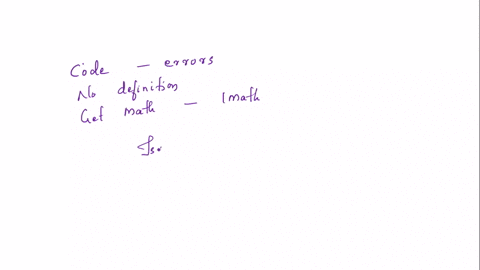 Code - errors
No definition
Get math - 1math